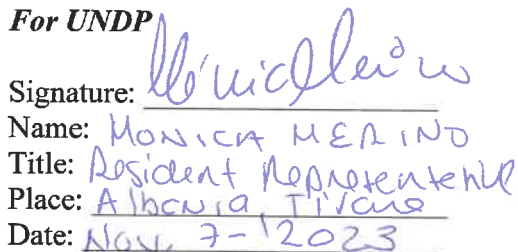 For UNDP
Signature: Mónica Merino
Name: MONICA MERINO
Title: Resident Representative
Place: Albania, Tirana
Date: Nov. 7-2023